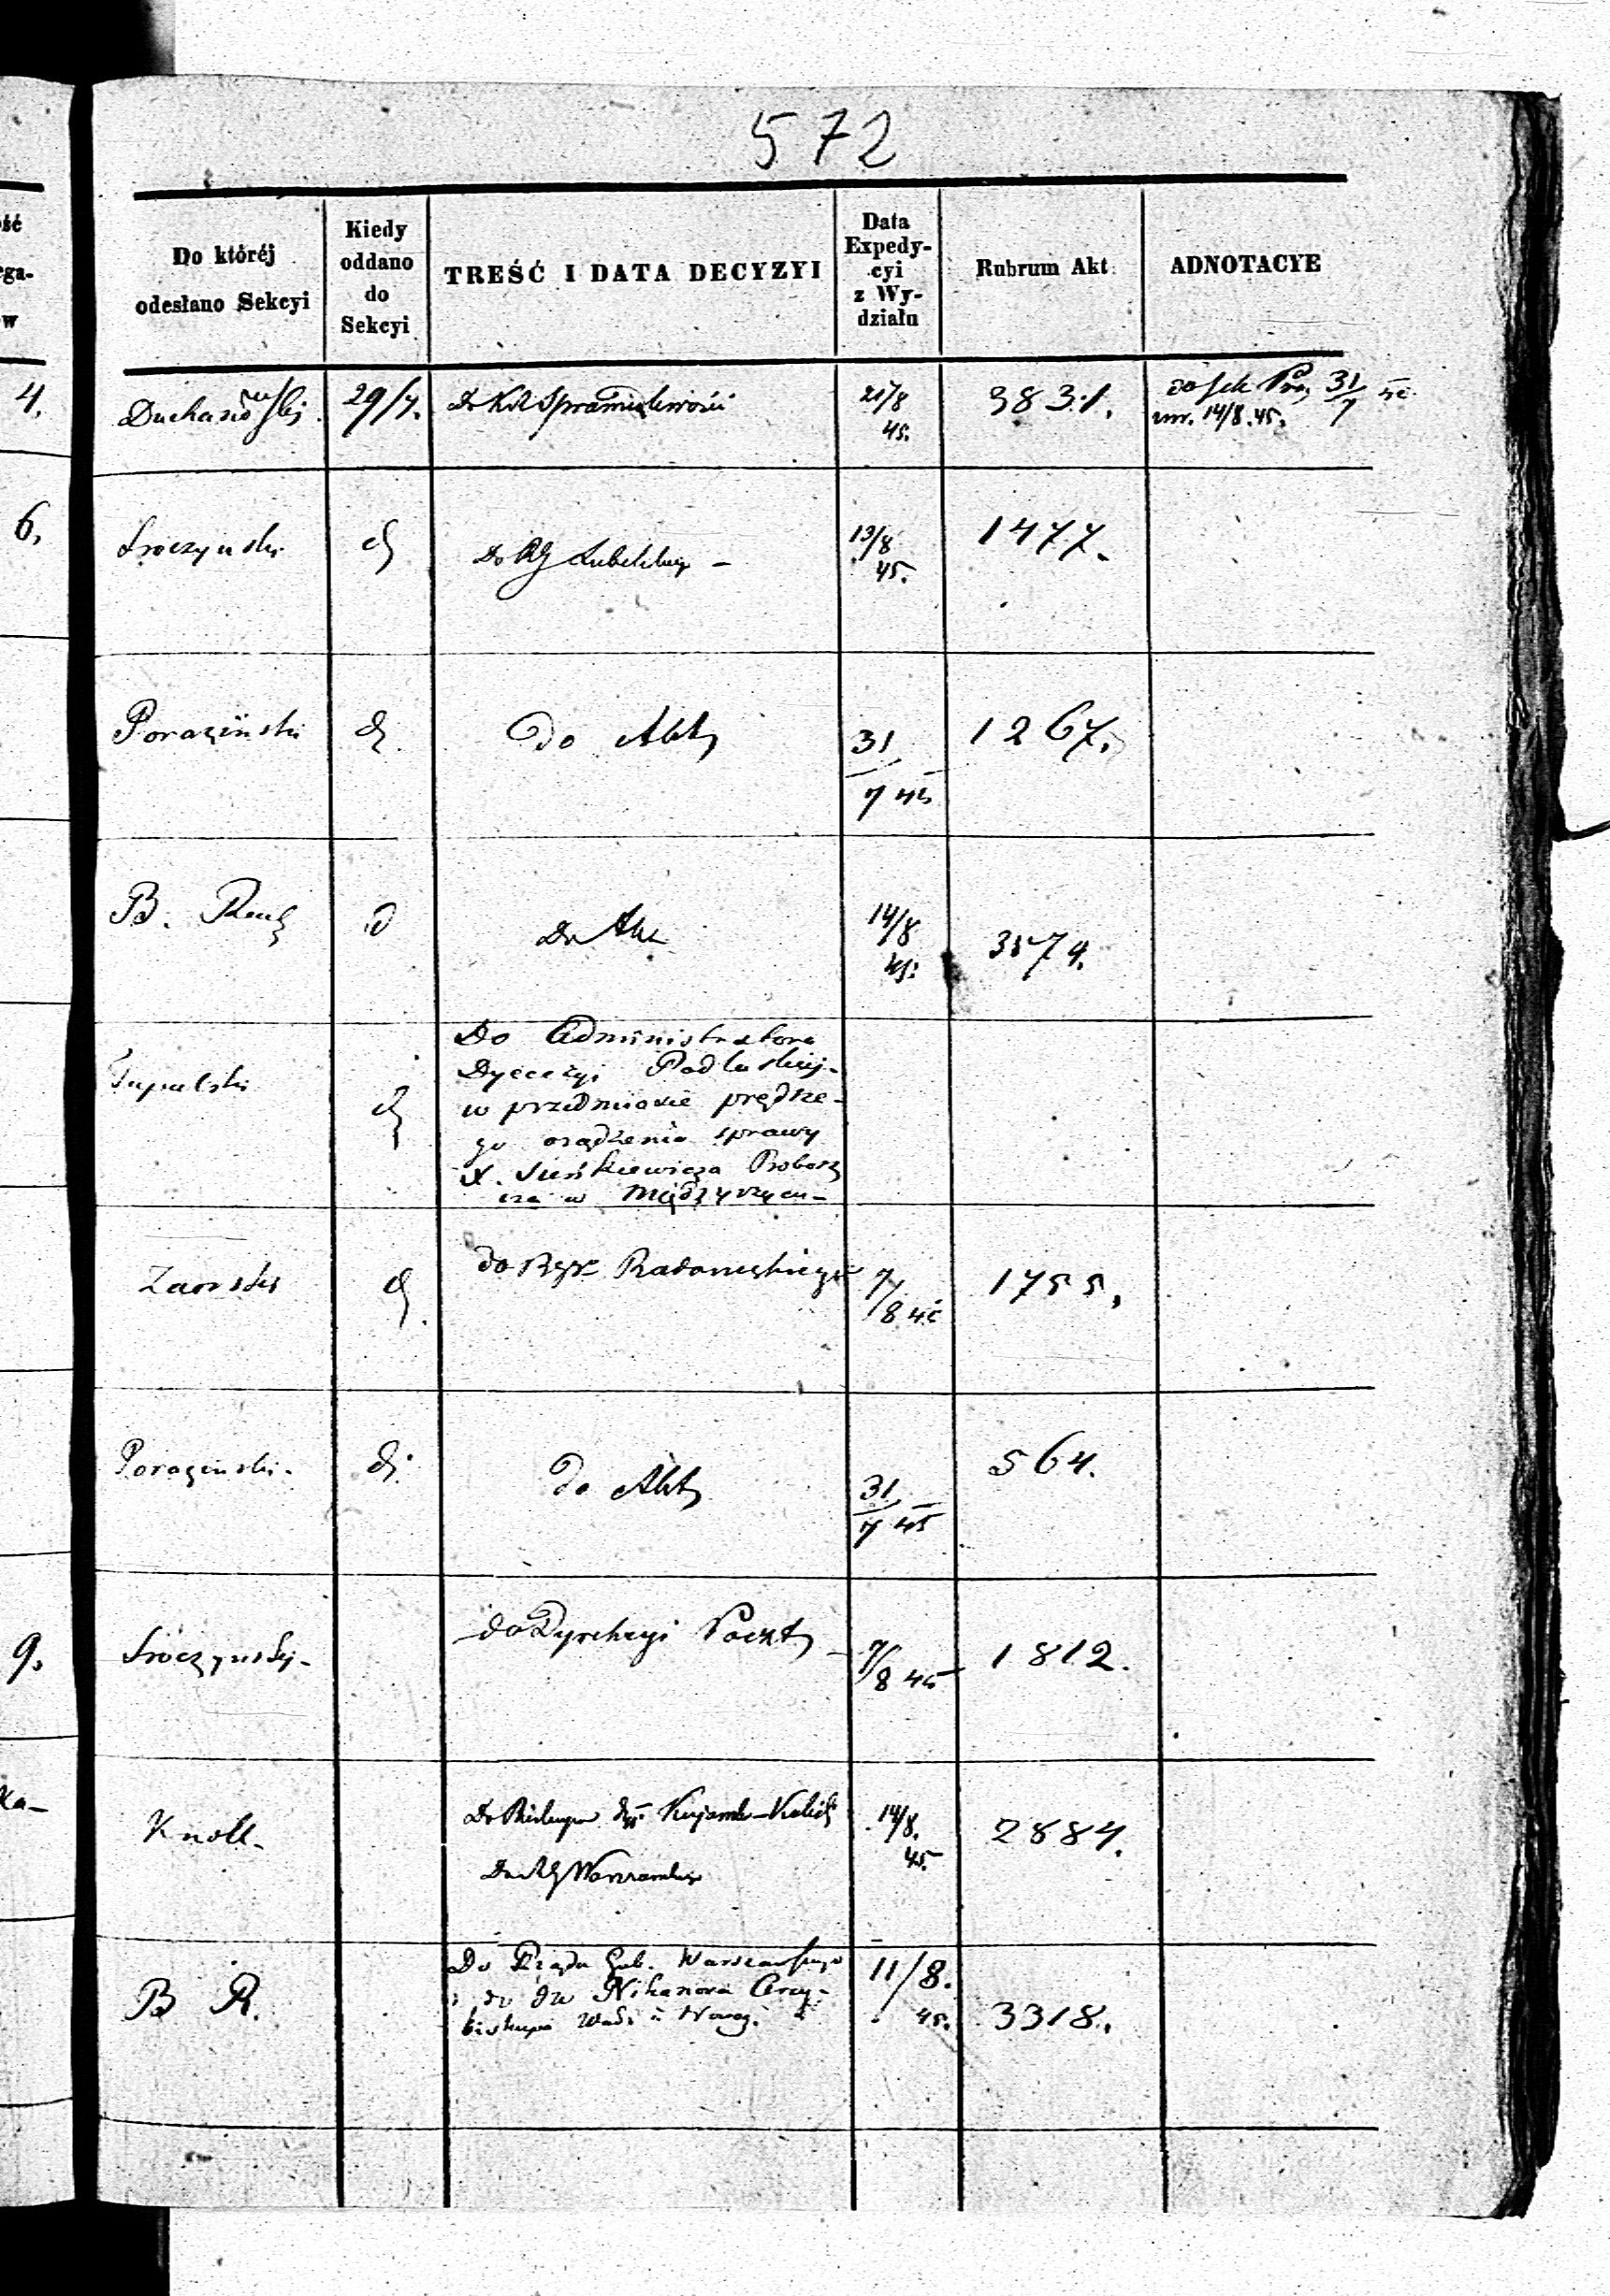 572
ść
ega-
w
Do któréj
odesłano Sekcyi
Kiedy
oddano
do
Sekcyi
TREŚĆ I DATA DECYZYI
Data
Expedy-
cyi
z Wy-
działu
Rubrum Akt
ADNOTACYE
4.
29/7.
Do Sprawiedliwości
21/8
45.
3831.
31/7
14/8.45.
6.
Sroczynski
Do RG Lubelskiego –
13/8
45.
1477.
Poraziński
Do Akt
31
7 45
1267.
B.
Do Akt
14/8
45.
3574.
Tupalski
Do Administratora
Dyecezyi Podlaskiej
w przedmiocie prędsze-
go osądzenia sprawy
X. Sieńkiewicza Probosz
cza w Międzyrzecu
Zaorski
do Radomskiego
7/8 45
1755.
Poraziński
Do Akt
31
7 45
564.
9.
Sroczynski
do Dyrekcyi Poczt
7/8 45
1812.
ka-
Knoll
Do Biskupa Dyi Kujawsko-Kalisk
Do RG Warszawskiego
14/8.
45.
2884.
B R.
Do Rządu Gub. Warszawskiego
i do Nikanora Arcy-
biskupa
11/8.
45.
3318.